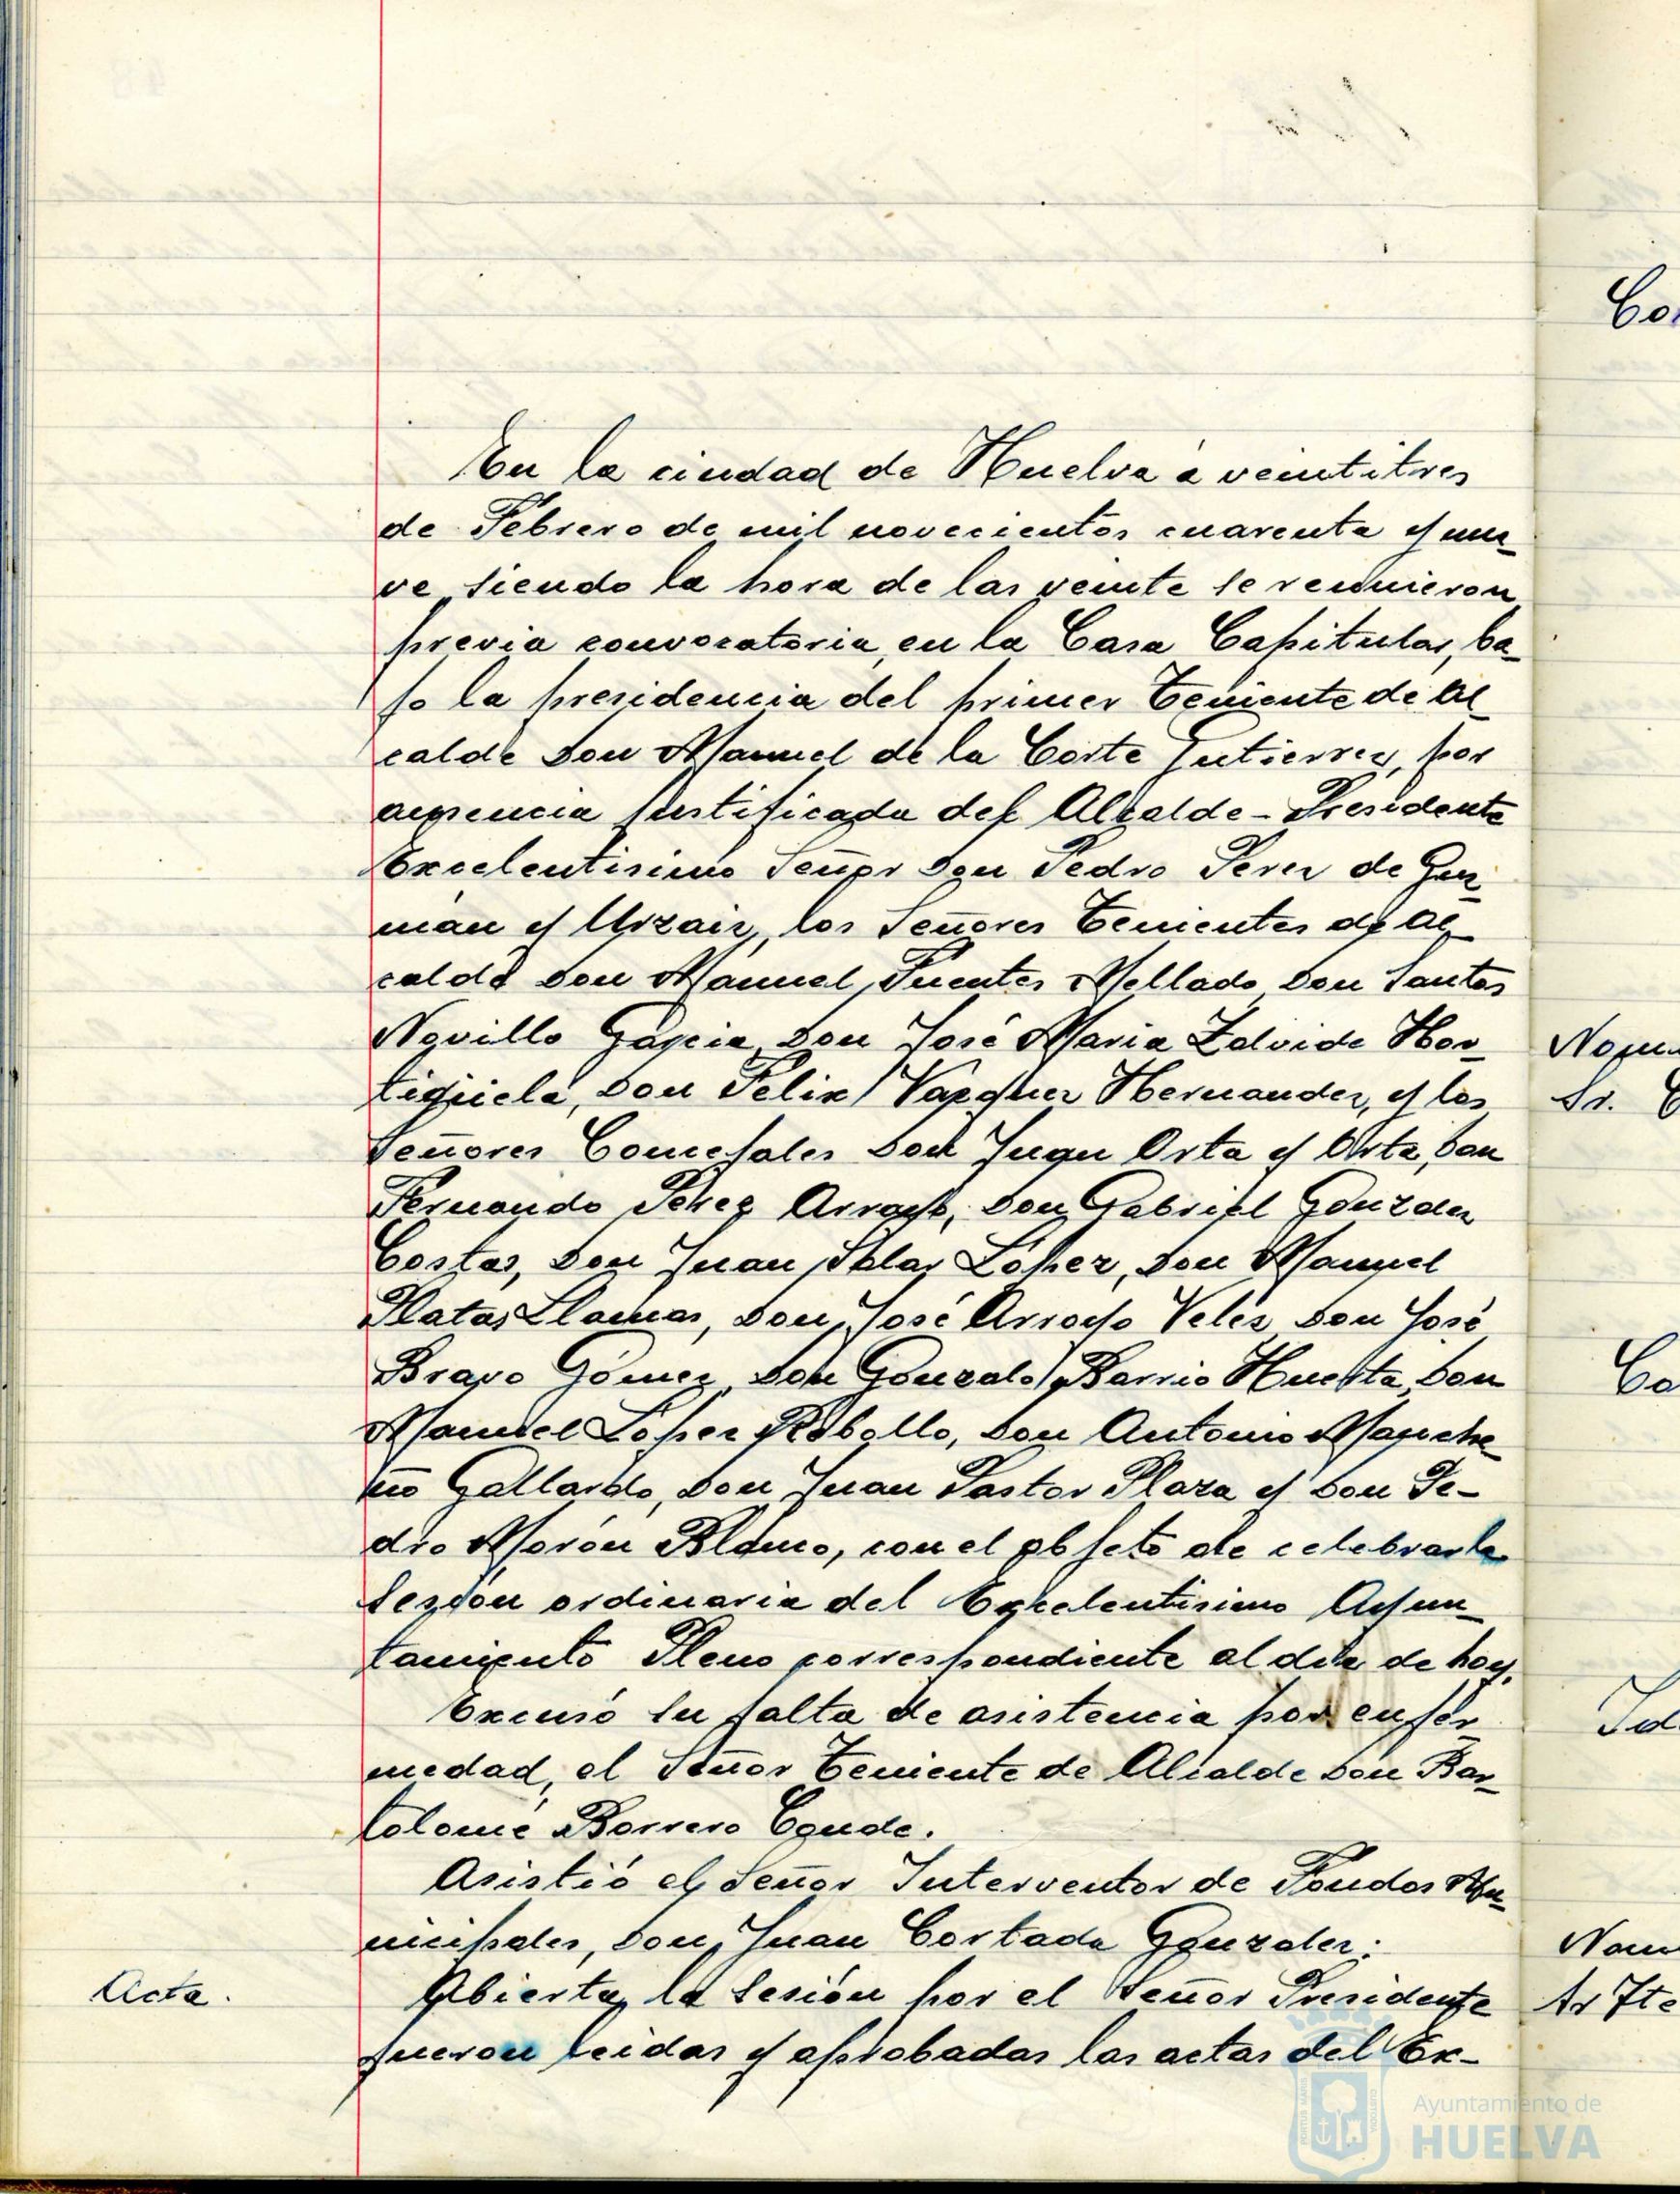 En la ciudad de Huelva á veintitres
de Febrero de mil novecientos cuarenta y nue-
ve, siendo la hora de las veinte se reunieron
previa convocatoria, en la Casa Capitular, ba-
jo la presidencia del primer Teniente de Al-
calde Don Manuel de la Corte Gutierrez, por
ausencia justificada del Alcalde-Presidente
Excelentisimo Señor Don Pedro Perez de Guz-
man y Urzaiz, los Señores Tenientes de Al-
calde Don Manuel Fuentes Mellado, Don Santos
Novillo Garcia, Don José Maria Zalvide Hor-
tigüela, Don Felix Vazquez Hernandez, y los
Señores Concejales Don Juan Orta y Orta, Don
Fernando Perez Arroyo, Don Gabriel Gonzalez
Costas, Don Juan Salas López, Don Manuel
Platas Llamas, Don José Arroyo Veles, Don José
Bravo Gómez, Don Gonzalo Barrio Huerta, Don
Manuel Lopez Rebollo, Don Antonio Manche-
ño Gallardo, Don Juan Pastor Plaza y Don Pe-
dro Morón Blanco, con el objeto de celebrar la
sesión ordinaria del Excelentisimo Ayun-
tamiento Pleno correspondiente al dia de hoy.
Excusó su falta de asistencia por enfer-
medad, el Señor Teniente de Alcalde Don Bar-
tolomé Borrero Conde.
Asistió el Señor Interventor de Fondos Mu-
nicipales, Don Juan Cortada Gonzalez.
Acta.
Abierta la sesión por el Señor Presidente
fueron leidas y aprobadas las actas del Ex-
Sr.
Ayuntamiento de
HUELVA